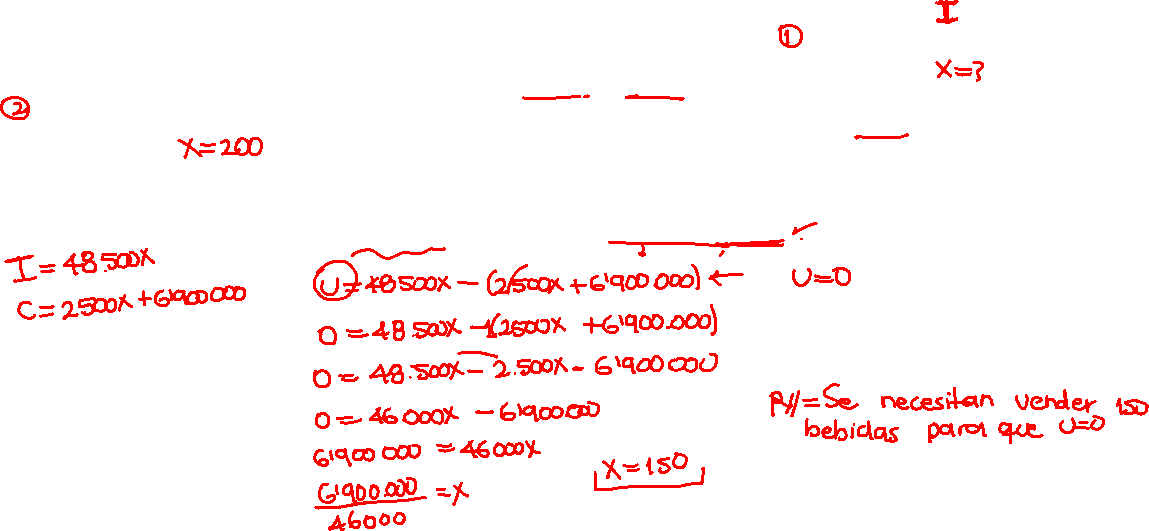 I
①
X=?
②
X=200
I=48.500X
C=2500X+6'900000
U=48500X-(2500X+6'900.000)← U=0
0=48.500X-1(2500X+6'900.000)
0=48.500X-2.500X-6'900000
0=46000X-6'900.000
6'900000=46000X
X=150
6'900.000/46000=X
R//=Se necesitan vender 150
bebidas para que U=0